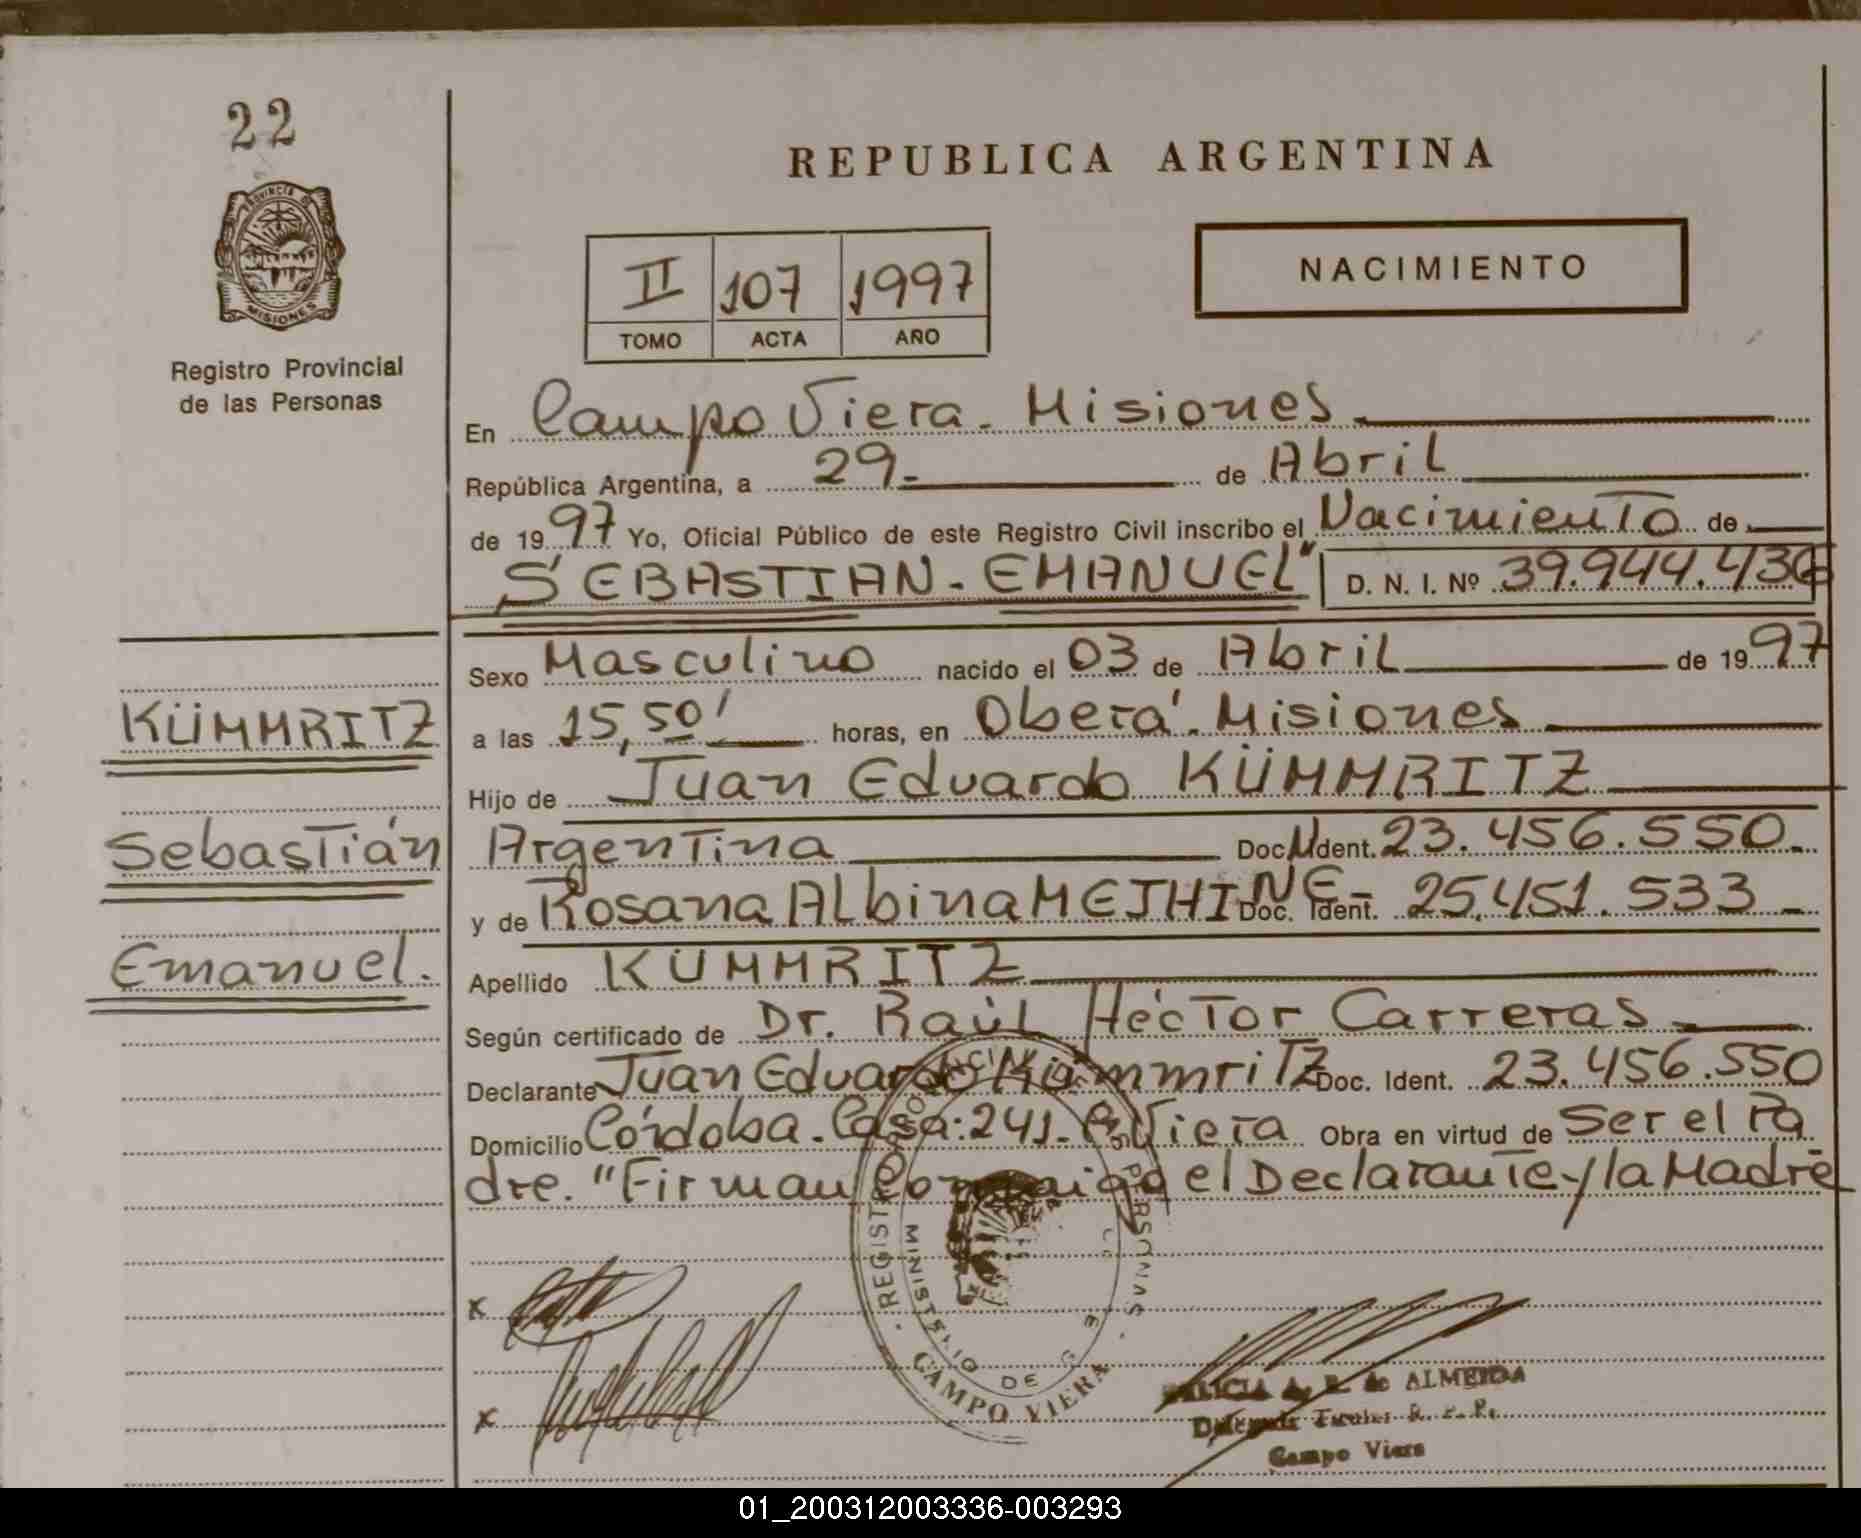 22
PROVINCIA DE
MISIONES
Registro Provincial
de las Personas
REPUBLICA ARGENTINA
II 107 1997
TOMO ACTA AÑO
NACIMIENTO
En Campo Viera - Misiones
República Argentina, a 29.- de Abril
de 1997 Yo, Oficial Público de este Registro Civil inscribo el Nacimiento de
SEBASTIAN - EMANUEL" D. N. I. Nº 39.944.436
Sexo Masculino nacido el 03 de Abril de 1997
a las 15,50' horas, en Oberá - Misiones
Hijo de Juan Eduardo KÜMMRITZ
Argentina Doc. Ident. 23.456.550.-
y de Rosana Albina METHINE - Doc. Ident. 25.451.533 -
Apellido KÜMMRITZ
Según certificado de Dr. Raúl Héctor Carreras
Declarante Juan Eduardo Kümmritz Doc. Ident. 23.456.550
Domicilio Córdoba - Casa: 241 - C. Viera Obra en virtud de Ser el Pa
dre. "Firman Conmigo el Declarante y la Madre
KÜMMRITZ
Sebastián
Emanuel.
x
x
REGISTRO PROVINCIAL DE LAS PERSONAS
MINISTERIO DE G
CAMPO VIERA
ALICIA A. R. de ALMEIDA
Delegada Titular R. P. P.
Campo Viera
01_200312003336-003293